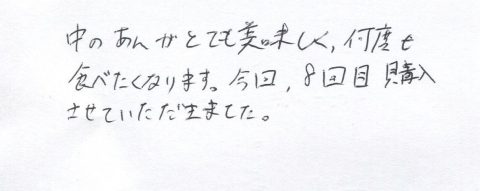 中のあんがとても美味しく，何度も
食べたくなります。今回，8回目購入
させていただきました。